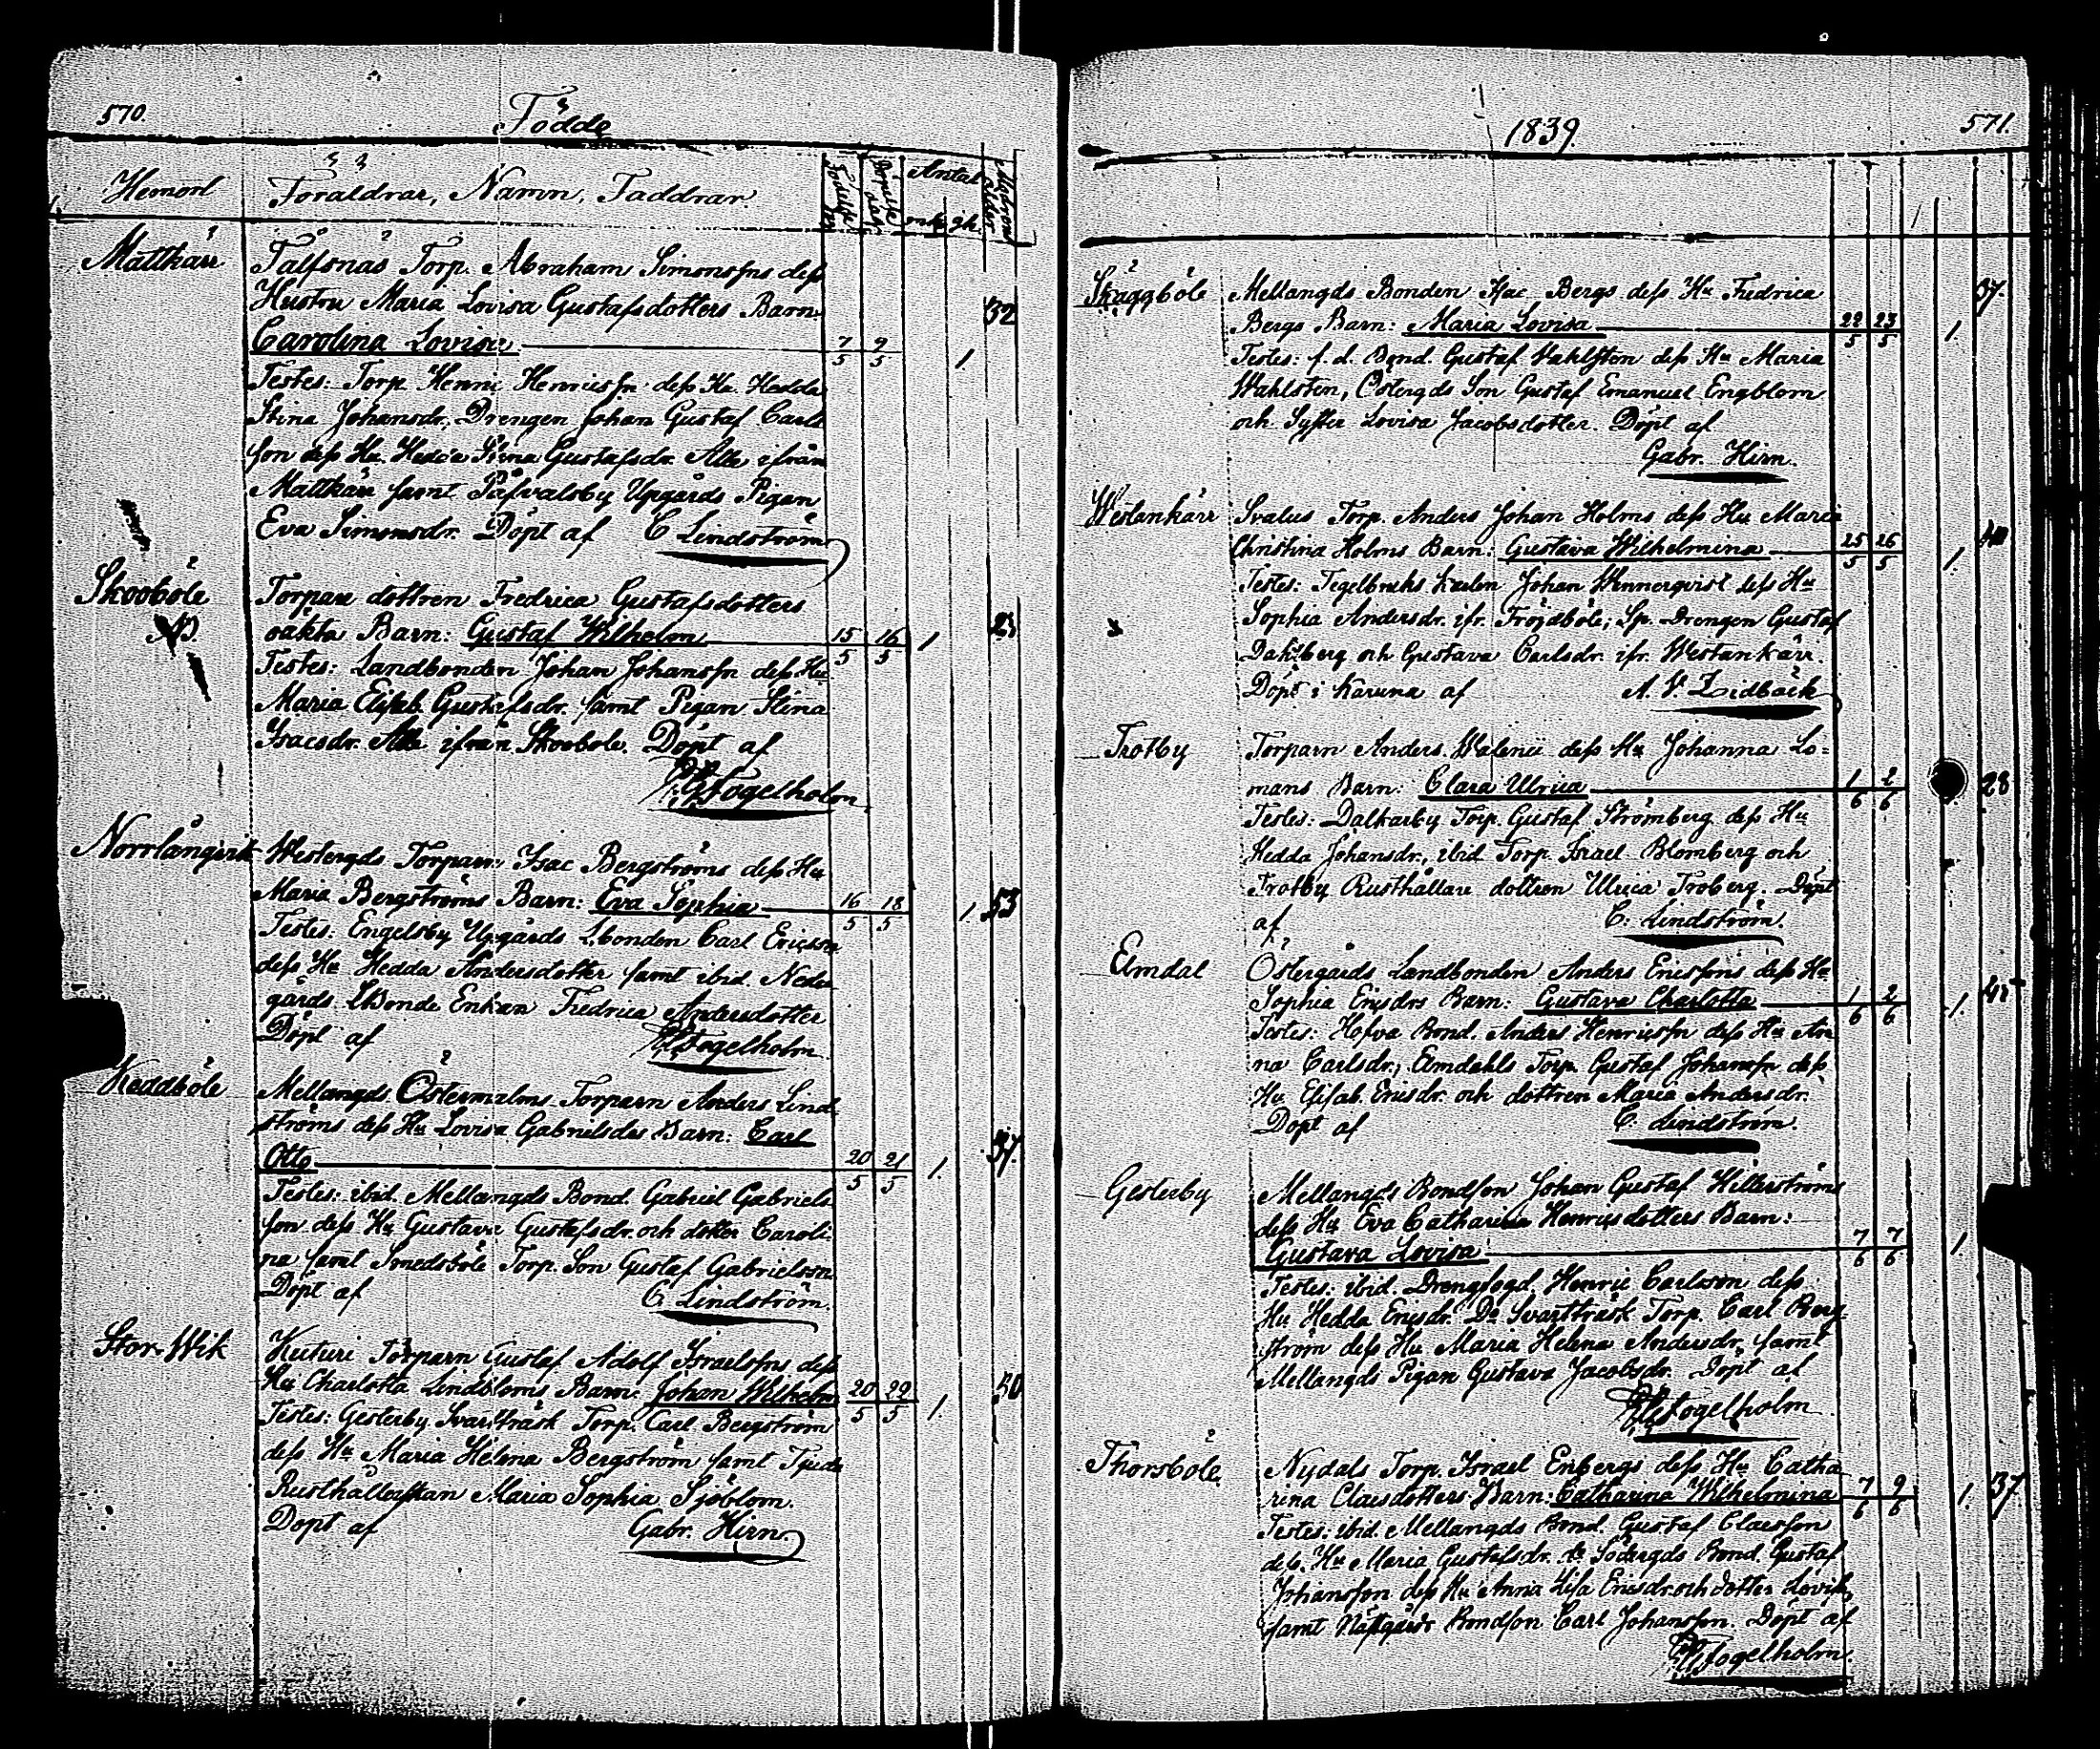 570.
Födde
Hemort Föräldrar, Namn, Faddrar Antal
Mattkärr Talfsnäs Torp. Abraham Simonssns dess
Hustru Maria Lovisa Gustafsdotters Barn: 32
Carolina Lovisa 7/5 9/5 1.
Testes: Torp. Henric Henricssn dess Hu. Hedda
Stina Johansdr, Drengen Johan Gustaf Carls
son dess Hu. Hedda Stina Gustafsdr. Alla ifrån
Mattkärr samt Påfvalsby Upgårds Pigan
Eva Simonsdr. Döpt af C Lindström
Skoböle Torpare dottren Fredrica Gustafsdotters
oäkta Barn: Gustaf Wilhelm 15/5 16/5 1
Testes: Landbonden Johan Johanssn dess Hu
Maria Elisab. Gustafsdr. samt Pigan Stina
Isacsdr. Alla ifrån Skoböle. Döpt af
Fogelholm
Norrlångvik Westergds Torparn Isac Bergströms dess Hu
Maria Bergströms Barn: Eva Sophia 16/5 18/5 1.
Testes: Engelsby Upgårds Lbonden Carl Ericsson
dess Hu Hedda Andersdotter samt ibid. Neder
gårds LBonde Enkan Fredrica Andersdotter
Döpt af Fogelholm
Keddböle Mellangds Östermalms Torparn Anders Lind
ströms dess Hu Lovisa Gabrielsdrs Barn: Carl
Otto 20/5 21/5 1. 37.
Testes: ibid. Mellangds Bond. Gabriel Gabriels
son dess Hu Gustava Gustafsdr. och dotter Caroli
na samt Smedsböle Torp. Son Gustaf Gabrielsson
Döpt af C Lindström.
Stor-Wik Kuturi Torparn Gustaf Adolf Israelssns dess
Hu Charlotta Lindbloms Barn: Johan Wilhelm 20/5 29/5 1.
Testes: Gesterby Svartträsk Torp. Carl Bergström
dess Hu Maria Helena Bergström samt Tjuda
Rusthålleskan Maria Sophia Sjöblom.
Döpt af Gabr. Hirn.
1839.
571.
Skäggböle Mellangds Bonden Isac Bergs dess Hu Fredrica 37.
Bergs Barn: Maria Lovisa 22/5 23/5 1.
Testes: f. d. Bond. Gustaf Wahlsten dess Hu Maria
Wahlsten, Östergds Son Gustaf Emanuel Engblom
och Syster Lovisa Jacobsdotter. Döpt af
Gabr. Hirn.
Westankärr Svalus Torp. Anders Johan Holms dess Hu Maria
Christina Holms Barn: Gustava Wilhelmina 25/5 26/5 1.
Testes: Tegelbruks karlen Johan Wennerqvist dess Hu
Sophia Andersdr. ifr. Fröjdböle; Sp. Drengen Gustaf
Dahlberg och Gustava Carlsdr. ifr. Westankärr.
Döpt i Karuna af A. V. Lidbäck
Trotby Torparn Anders Walenii dess Hu Johanna Lo=
mans Barn: Clara Ulrica 1/6 2/6 28
Testes: Dalkarby Torp. Gustaf Strömberg dess Hu
Hedda Johansdr., ibid Torp. Israel Blomberg och
Trotby Rusthållare dottren Ulrica Troberg. Döpt
af C: Lindström.
Elmdal Östergårds Landbonden Anders Ericssons dess Hu
Sophia Ericsdrs Barn: Gustava Charlotta 1/6 2/6 1.
Testes: Hefva Bond. Anders Henricssn dess Hu An
na Carlsdr.; Elmdahls Torp. Gustaf Johanssn dess
Hu Elisab. Ericsdr. och dottren Maria Andersdr.
Döpt af C: Lindström.
Gesterby Mellangds Bondson Johan Gustaf Hillerströms
dess Hu Eva Catharina Henricsdotters Barn:
Gustava Lovisa 7/6 7/6 1.
Testes: ibid. Drengfogd. Henric Carlsson dess
Hu Hedda Ericsdr. Do Svartträsk Torp. Carl Berg
ström dess Hu Maria Helena Andersdr. samt
Mellangds Pigan Gustava Jacobsdr. Döpt af
Fogelholm
Thorsböle Nydals Torp. Israel Enbergs dess Hu Catha
rina Claesdotters Barn: Catharina Wilhelmina 7/6 9/6 1. 37.
Testes: ibid. Mellangds Bond. Gustaf Claesson
dess Hu Maria Gustafsdr. do Södergds Bond. Gustaf
Johansson dess Hu Anna Lisa Ericsdr. och dotter Lovisa,
samt Bondson Carl Johansson. Döpt af
Fogelholm.